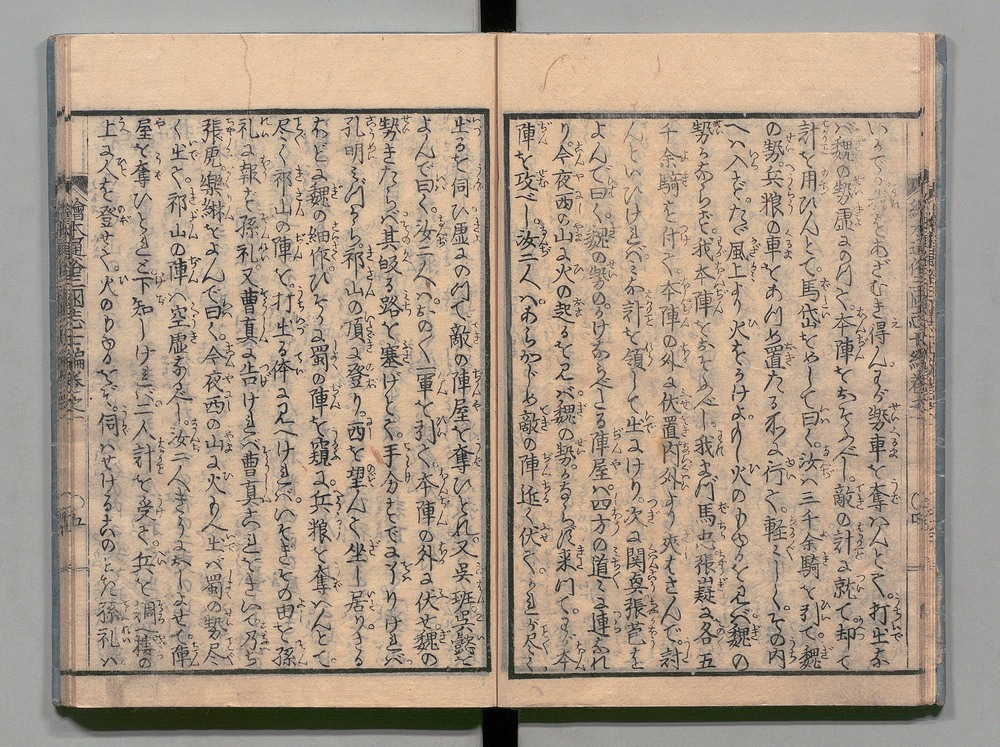 いかでか我をあざむき得んもし勢車を奪はんとて。打出な
ば魏の勢虚にのつて本陣をおそふべし。敵の計に就て却て
計を用ひんとて。馬岱をめして曰く。汝ハ三千余騎を引て。魏
の勢兵粮の車をあつめ置たる所に行て。軽々しくその内
へ入らず。たゞ風上より火をかけよ。もし火のもゆるを見ば魏の
勢かならず。我本陣をおそふべし。我まづ馬忠張嶷に各五
千余騎を付て。本陣の外に伏置内外より夾さんで。討
んといひければみな計を領して出にけり。次に関興張苞を
よんで曰く。魏の勢の。かけならべたる陣屋ハ四方の道に連れ
り。今夜西の山に火の起るを見バ魏の勢かならず来つてわが本
陣を攻べし。汝二人ハあらかじめ敵の陣近く伏て。かれが尽く
出るを伺ひ虚にのつて敵の陣屋を奪ひとれ又呉班呉懿を
よんで曰く。汝二人ハおの〳〵一軍を引て本陣の外に伏せ魏の
勢きたらバ其皈る路を塞げとて。手分すでにをハりければ
孔明ミづから祁山の頂に登り。西を望んで坐し居りさる
ほどに魏の細作ひそかに蜀の陣を窺ひ兵粮を奪はんとて
尽く祁山の陣を。打出る体に見へければいそぎその由を孫
礼に報ず孫礼又曹真に告ければ曹真これをきいて乃ち
張虎樂綝をよんで曰く。今夜西の山に火もへ出バ蜀の勢尽
く出て。祁山の陣ハ空虚なるべし汝二人おしよせて陣
屋を奪ひとれと下知しければ二人計を受て兵を調へ樓の
上に人を登せて。火のもゆるをぞ。伺ハせけるこのとき孫礼ハ
繪本通俗三國志七編巻之